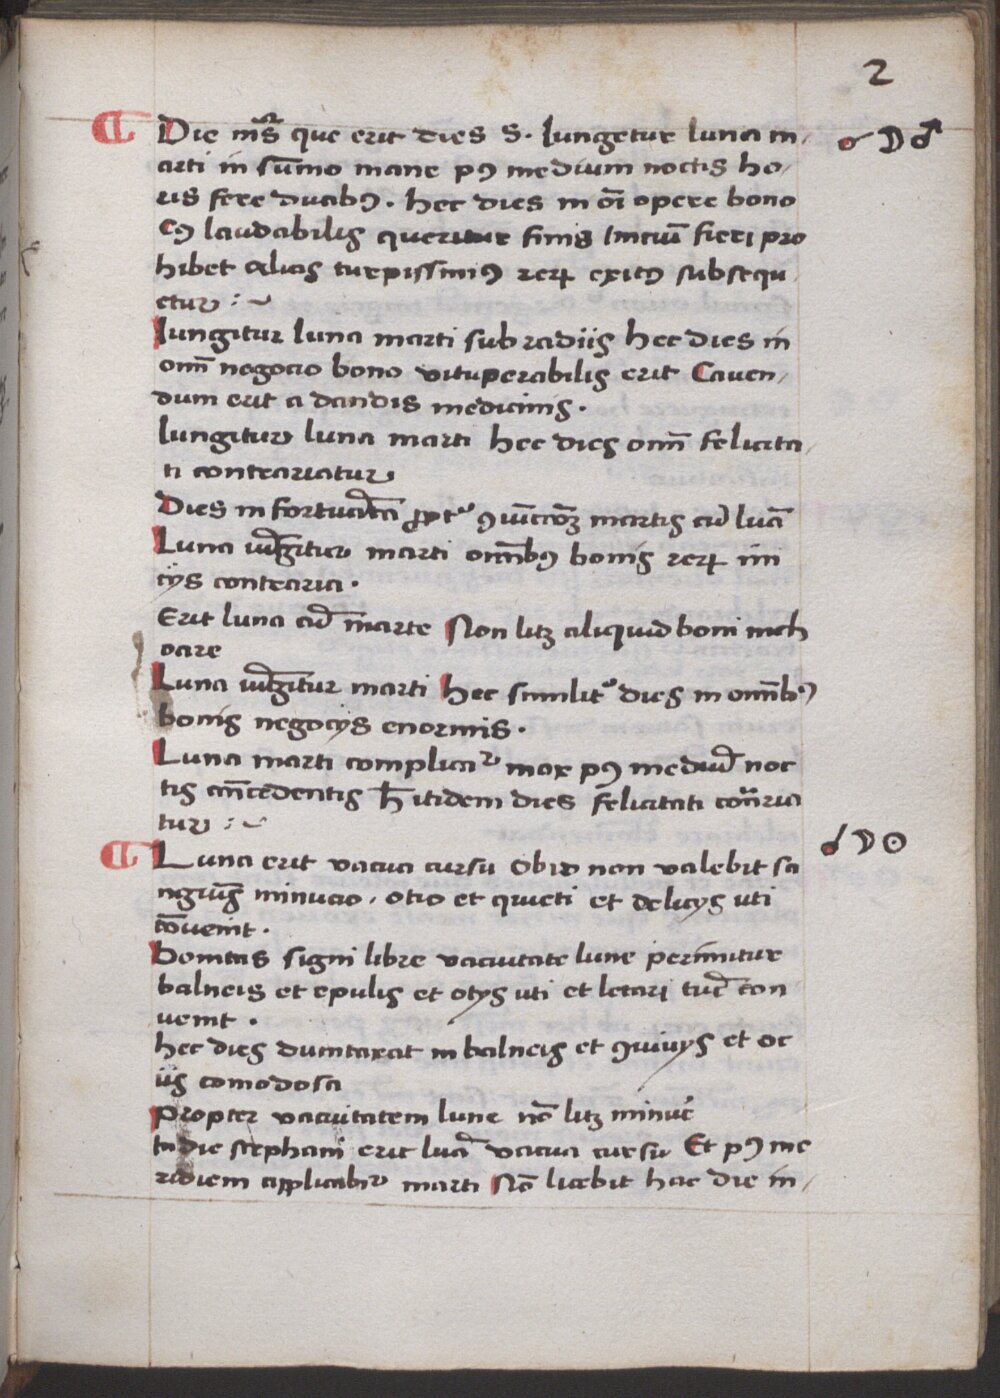 2
Die mr̄s que erit dies S. Iungetur luna m,
arti in sūmo mane pꝰ medium noctis ho,
ris fere duabꝰ. hec dies in oī opere bono
Cꝰ laudabilis queritur finis Iniciū fieri pro
hibet Alias turpissimꝰ rerꝝ exitꝰ subsequ
etur :~
Iungitur luna marti sub radiis hec dies in
omī negocio bono vituperabilis erit Caven,
dum erit a dandis medicinis.
Iungitur luna marti hec dies omī felicita,
ti contrariatur
Dies infortunata martis ad lunā
Luna iūgitur marti omībꝰ bonis rerꝝ ini
cijs contraria.
Erit luna cū marte Non licꝫ aliquid boni inch
oare
Luna iūgitur marti hec similitʳ dies in omībꝰ
bonis negocijs enormis.
Luna marti complicaʳ mox pꝰ mediū noc
tis antecedentis h̄ itidem dies felicitati cōtraria
tur :~
Luna erit vacua cursu Obid non valebit sa
nguīs minucio, otio et quieti et delicijs uti
cōvenit.
Bonitas signi libre vacuitate lune perimitur
balneis et epulis et otijs uti et letari tūc con
venit.
hec dies dumtaxat in balneis et ꝯvivijs et oc
iis comodosa
Propter vacuitatem lune nō licꝫ minuē
In die stephani erit lūa vacua cursu Et pꝰ me
ridiem applicabiʳ marti Nō licebit hac die in,
☌ ☽ ♂
☌ ☽ ☉